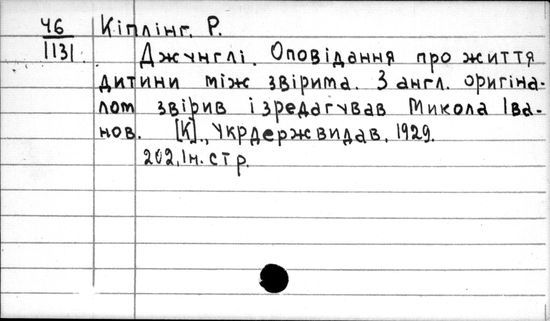 Ч6 Кіплінг, Р.
1131 Джунглі. Оповідання про життя
дитини між звірима. З англ. оригіна-
лом звірив і зредагував Микола Іва-
нов. [К]., Укрдержвидав, 1929.
202, Ін. стр.